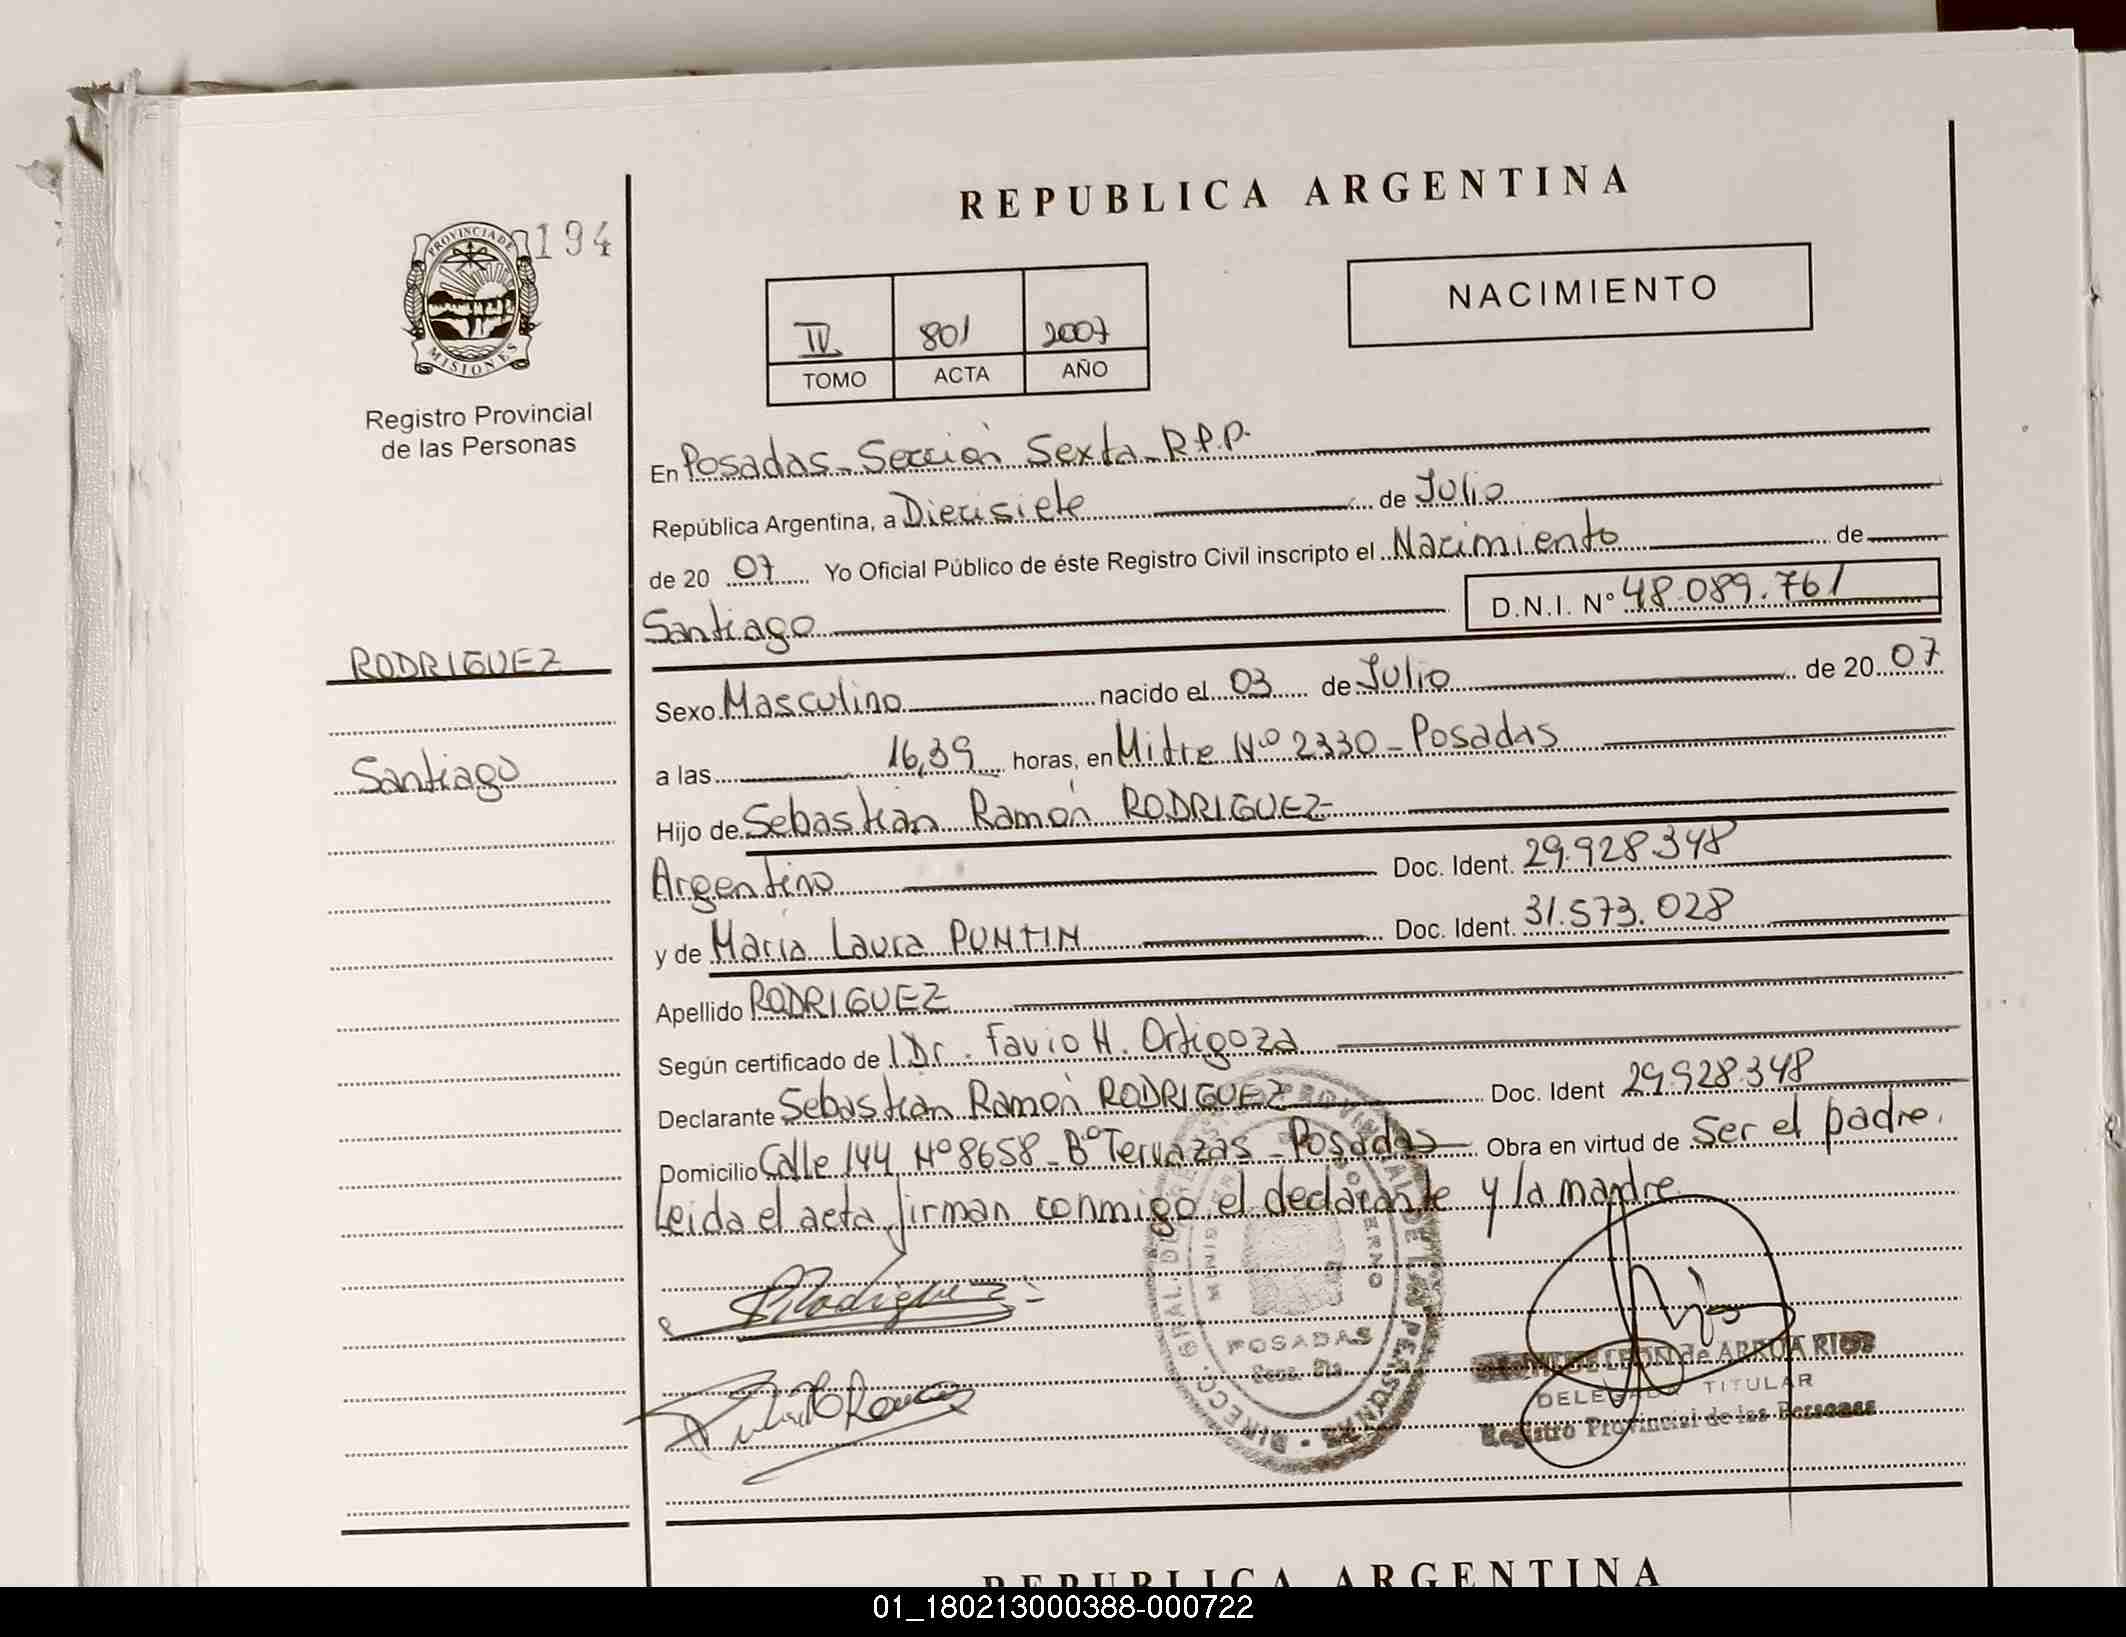 REPUBLICA ARGENTINA
PROVINCIA DE
MISIONES
194
Registro Provincial
de las Personas
IV 801 2007
TOMO ACTA AÑO
NACIMIENTO
En Posadas - Sección Sexta - R.P.P.
República Argentina, a Diecisiete de Julio
de 20 07 Yo Oficial Público de éste Registro Civil inscripto el Nacimiento de
Santiago D.N.I. Nº 48.089.761
RODRIGUEZ
Santiago
Sexo Masculino nacido el 03 de Julio de 20 07
a las 16,39 horas, en Mitre Nº 2330 - Posadas
Hijo de Sebastián Ramón RODRIGUEZ
Argentino Doc. Ident. 29.928.348
y de María Laura PUNTIN Doc. Ident. 31.573.028
Apellido RODRIGUEZ
Según certificado de l Dr. Favio H. Ortigoza
Declarante Sebastián Ramón RODRIGUEZ Doc. Ident 29.928.348
Domicilio Calle 144 Nº 8658 - Bº Terrazas - Posadas Obra en virtud de Ser el padre.
Leida el acta firman conmigo el declarante y la madre
Rodriguez
POSADAS
Secc. 6ta.
LEON de ARRUA RIOS
DELEGADA TITULAR
Registro Provincial de las Personas
REPUBLICA ARGENTINA
01_180213000388-000722